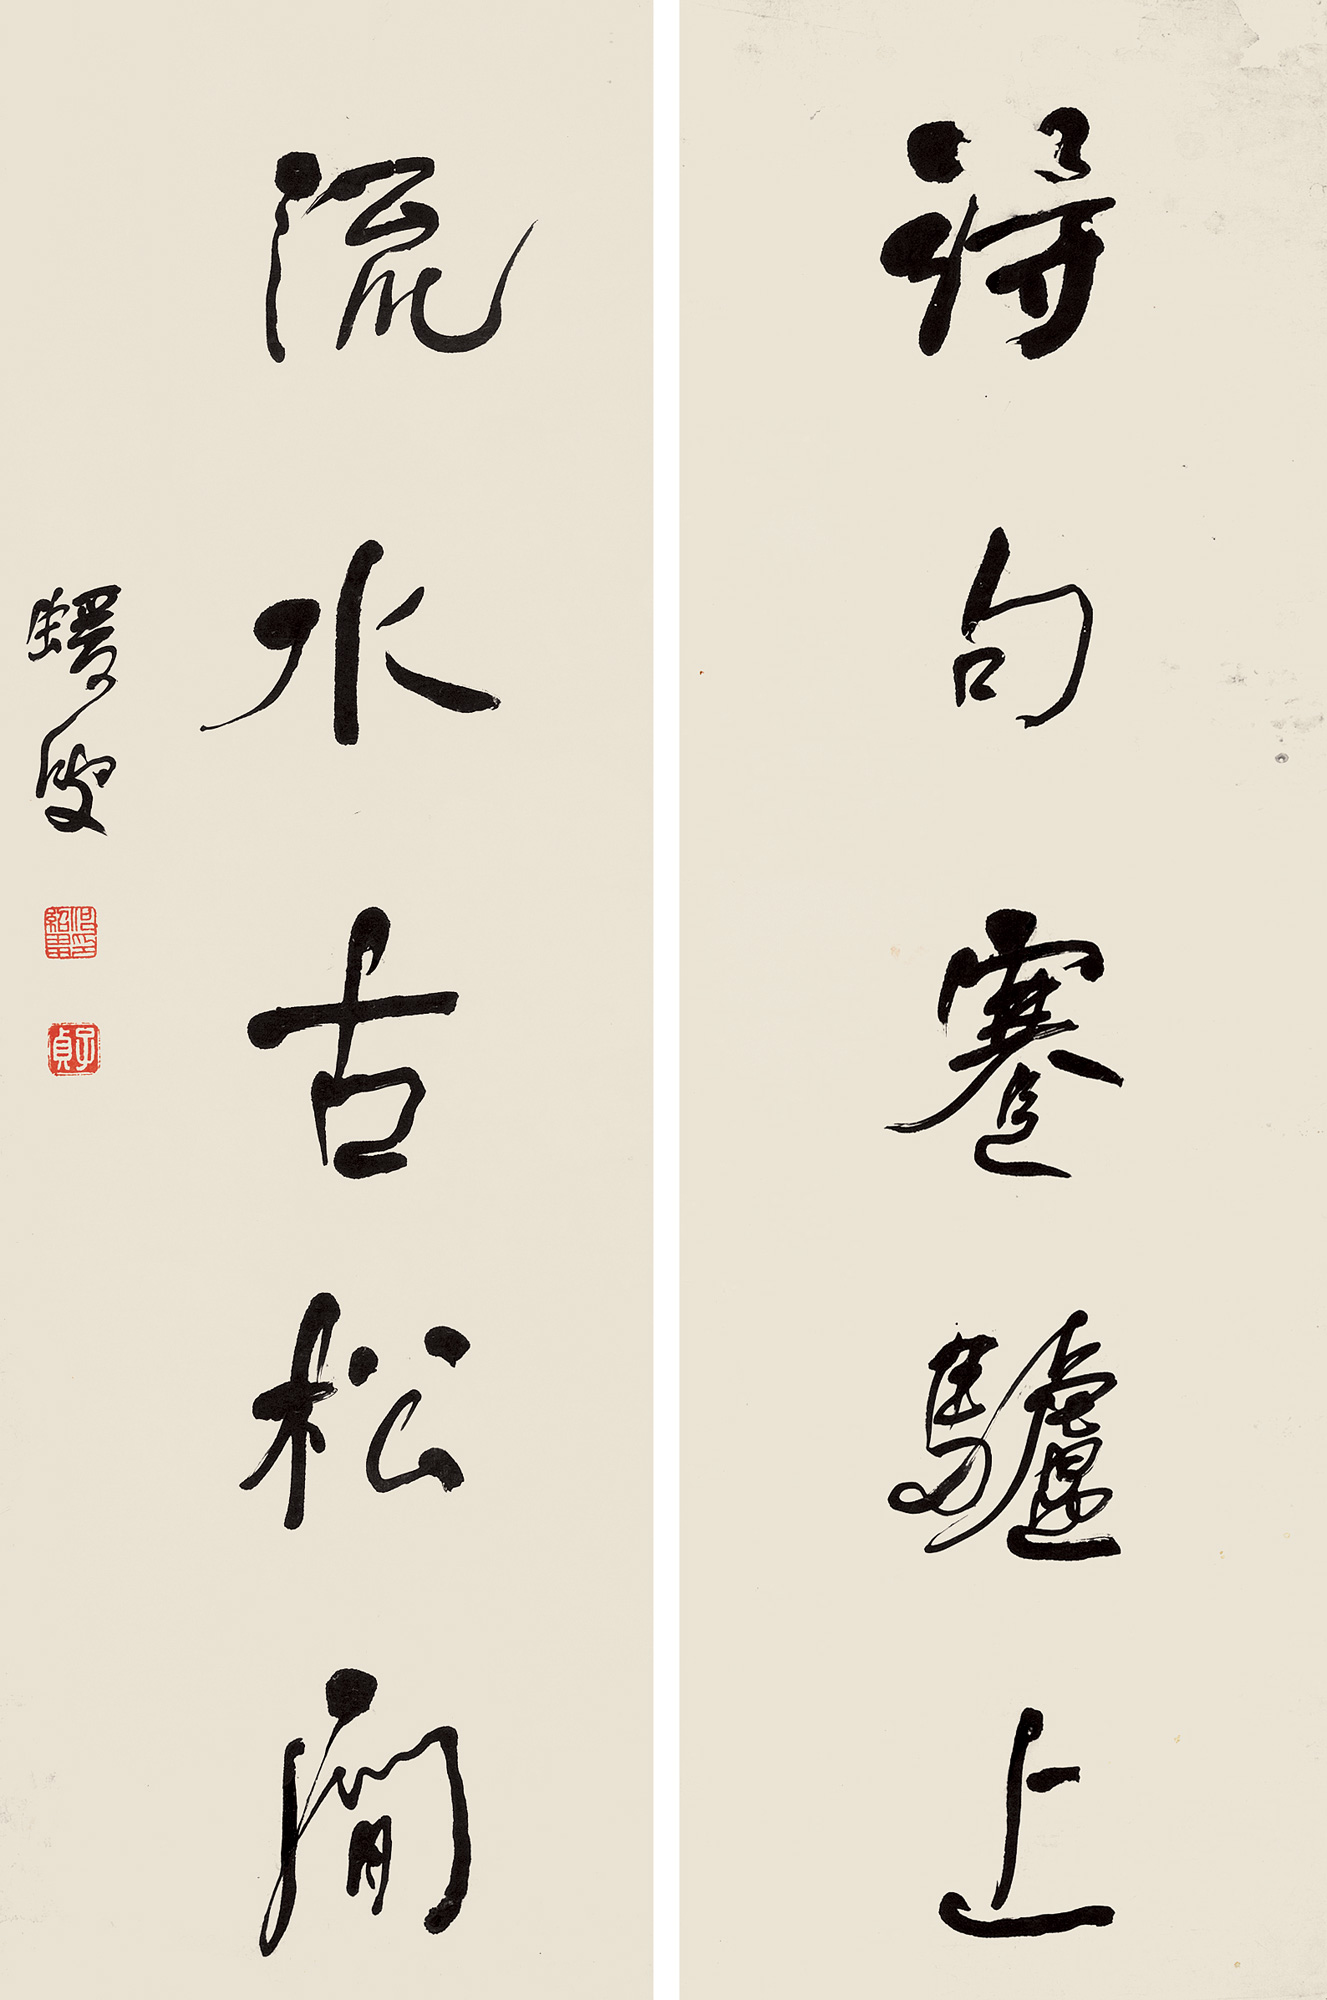 得句蹇驢上
流水古松間
蝯叟
何紹基印
子貞